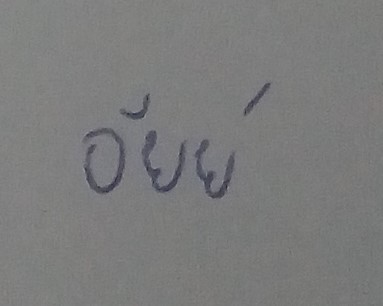 อัยย์